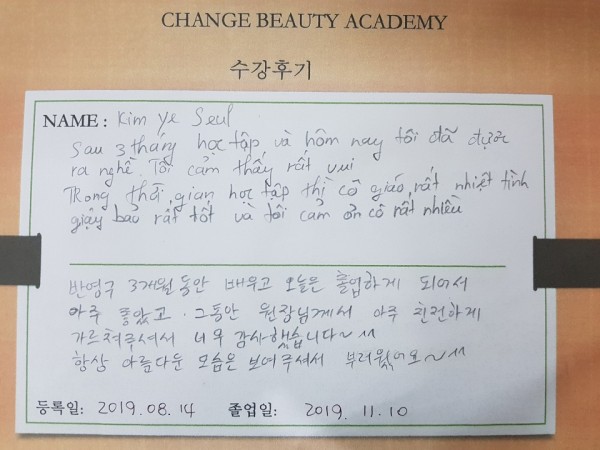 CHANGE BEAUTY ACADEMY
수강후기
NAME : Kim Ye Seul
Sau 3 tháng học tập và hôm nay tôi đã được
ra nghề. Tôi cảm thấy rất vui
Trong thời gian học tập thì cô giáo rất nhiệt tình
giậy bảo rất tốt và tôi cảm ơn cô rất nhiều
반영구 3개월동안 배우고 오늘은 졸업하게 되어서
아주 좋았고. 그동안 원장님께서 아주 친전하게
가르쳐주셔서 너무 감사했습니다~^^
항상 아름다운 모습은 보여주셔서 부러웠어요~^^
등록일: 2019.08.14 졸업일: 2019. 11.10